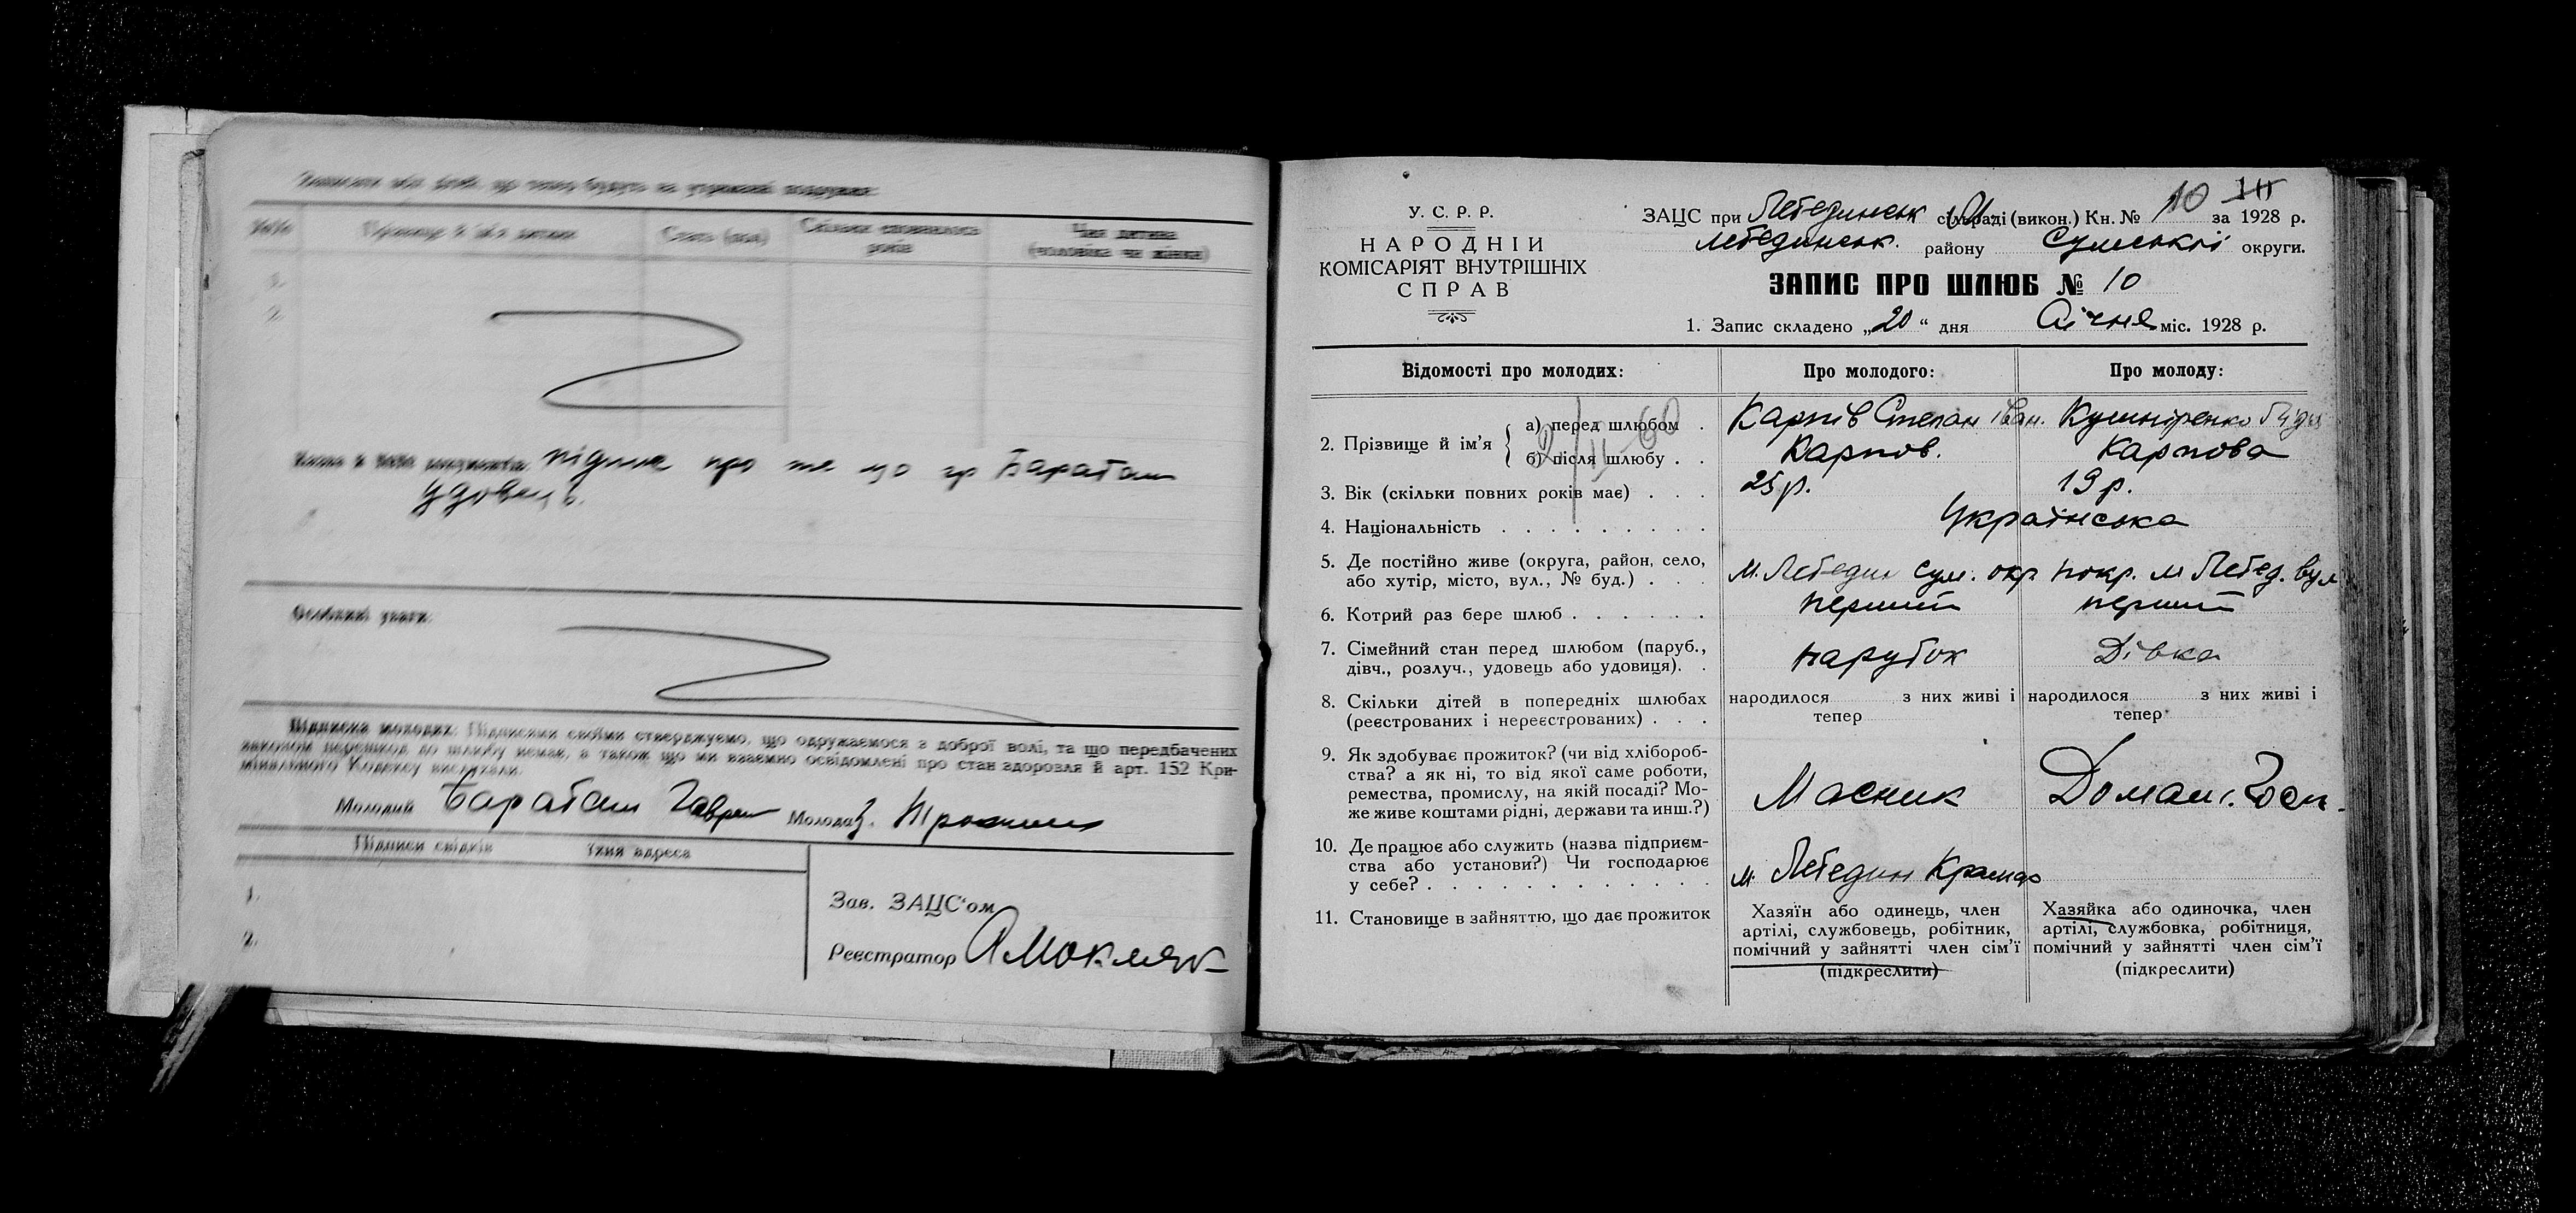 Прізвище й ім'я дитини
Стать (пол)
Скільки сповнилося
років
Чия дитина
(чоловіка чи жінки)
1.
2.
підпис про те що гр Баратом
удовець.
Особливі уваги:
Підписка молодих: Підписями своїми стверджуємо, що одружаємося з доброї волі, та що передбачених
законом перешкод до шлюбу немає, а також що ми взаємно освідомлені про стан здоров'я й арт. 152 Кри-
мінального Кодексу вислухали.
Молодий Молода
Підписи свідків Їхня адреса
1.
2.
Зав. ЗАЦС'ом
Реєстратор
10
У. С. Р. Р.
НАРОДНІЙ
КОМІСАРІЯТ ВНУТРІШНІХ
СПРАВ
ЗАЦС при Лебединськ сільраді (викон.) Кн. № 10 за 1928 р.
Лебединськ. району Сумської округи.
ЗАПИС ПРО ШЛЮБ № 10
1. Запис складено „20“ дня Січня міс. 1928 р.
Відомості про молодих: Про молодого: Про молоду:
2. Прізвище й ім'я
а) перед шлюбом . Карпів Степан Іван. Кушніренко Лідія
б) після шлюбу . . Карпов. Карпова
3. Вік (скільки повних років має) . . . 25 р. 19 р.
4. Національність . . . . . . . . . Українська
5. Де постійно живе (округа, район, село,
або хутір, місто, вул., № буд.) . . . м. Лебедин Сум. окр м Лебед. вул.
6. Котрий раз бере шлюб . . . . . . перший перший
7. Сімейний стан перед шлюбом (паруб.,
дівч., розлуч., удовець або удовиця). . парубок Дівка
8. Скільки дітей в попередніх шлюбах
(реєстрованих і нереєстрованих) . . .
народилося з них живі і
тепер
народилося з них живі і
тепер
9. Як здобуває прожиток? (чи від хлібороб-
ства? а як ні, то від якої саме роботи,
ремества, промислу, на якій посаді? Мо-
же живе коштами рідні, держави та инш.?)
Масник Домаш. Госп.
10. Де працює або служить (назва підприєм-
ства або установи?) Чи господарює
у себе? . . . . . . . . . . . . м. Лебедин
11. Становище в зайняттю, що дає прожиток
Хазяїн або одинець, член
артілі, службовець, робітник,
помічний у зайнятті член сім'ї
(підкреслити)
Хазяйка або одиночка, член
артілі, службовка, робітниця,
помічний у зайнятті член сім'ї
(підкреслити)